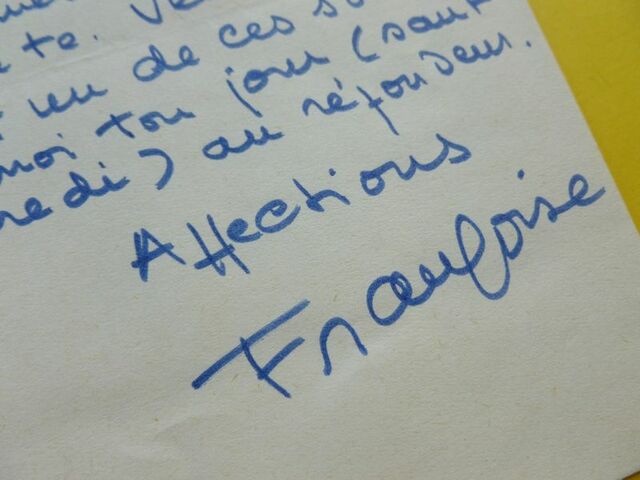 te. Ve
un de ces so
moi ton jour (sauf
redi) au répondeur.
Affections
Françoise